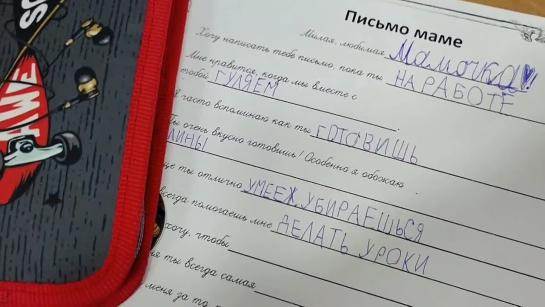 Письмо маме
Милая, любимая Мамочка!
Хочу написать тебе письмо, пока ты НА РАБОТЕ
Мне нравится, когда мы вместе с
тобой ГУЛЯЕМ
Я часто вспоминаю как ты ГОТОВИШЬ
Ты очень вкусно готовишь! Особенно я обожаю
ЛИНЫ
ще ты отлично УМЕЕЖ УБИРАЕШЬСЯ
всегда помогаешь мне ДЕЛАТЬ УРОКИ
хочу, чтобы
я ты всегда самая
меня за то,
AWE